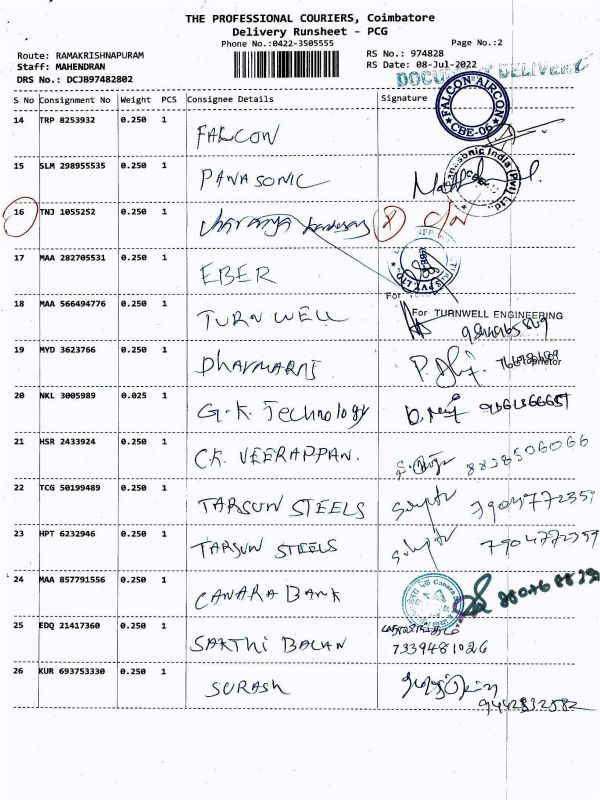 THE PROFESSIONAL COURIERS, Coimbatore
Delivery Runsheet - PCG
Phone No.:0422-3505555
Page No.:2
Route: RAMAKRISHNAPURAM
RS No.: 974828
Staff: MAHENDRAN
RS Date: 08-Jul-2022
DRS No.: DCJB97482802
DOCUMENT DELIVERY
S No Consignment No Weight PCS Consignee Details Signature
14 TRP 8253932 0.250 1 FALCON
FALCON AIRCON
CBE-06
15 SLM 298955535 0.250 1 PANASONIC
Panasonic India (Pvt) Ltd.
16 TNJ 1055252 0.250 1
17 MAA 282705531 0.250 1 EBER
18 MAA 566494776 0.250 1 TURN WELL
For TURNWELL ENGINEERING
19 MYD 3623766 0.250 1 DHARMARAJ
Proprietor
20 NKL 3005989 0.025 1 G.K. Technology
21 HSR 2433924 0.250 1 CK. VEERAPPAN. 8838506066
22 TCG 50199489 0.250 1 TARSUN STEELS 7904772359
23 HPT 6232946 0.250 1 TARSUN STEELS 7904772359
24 MAA 857791556 0.250 1 CANARA BANK
25 EDQ 21417360 0.250 1 SAKTHI BALAN
7339481026
26 KUR 693753330 0.250 1 SURASH
9442832582